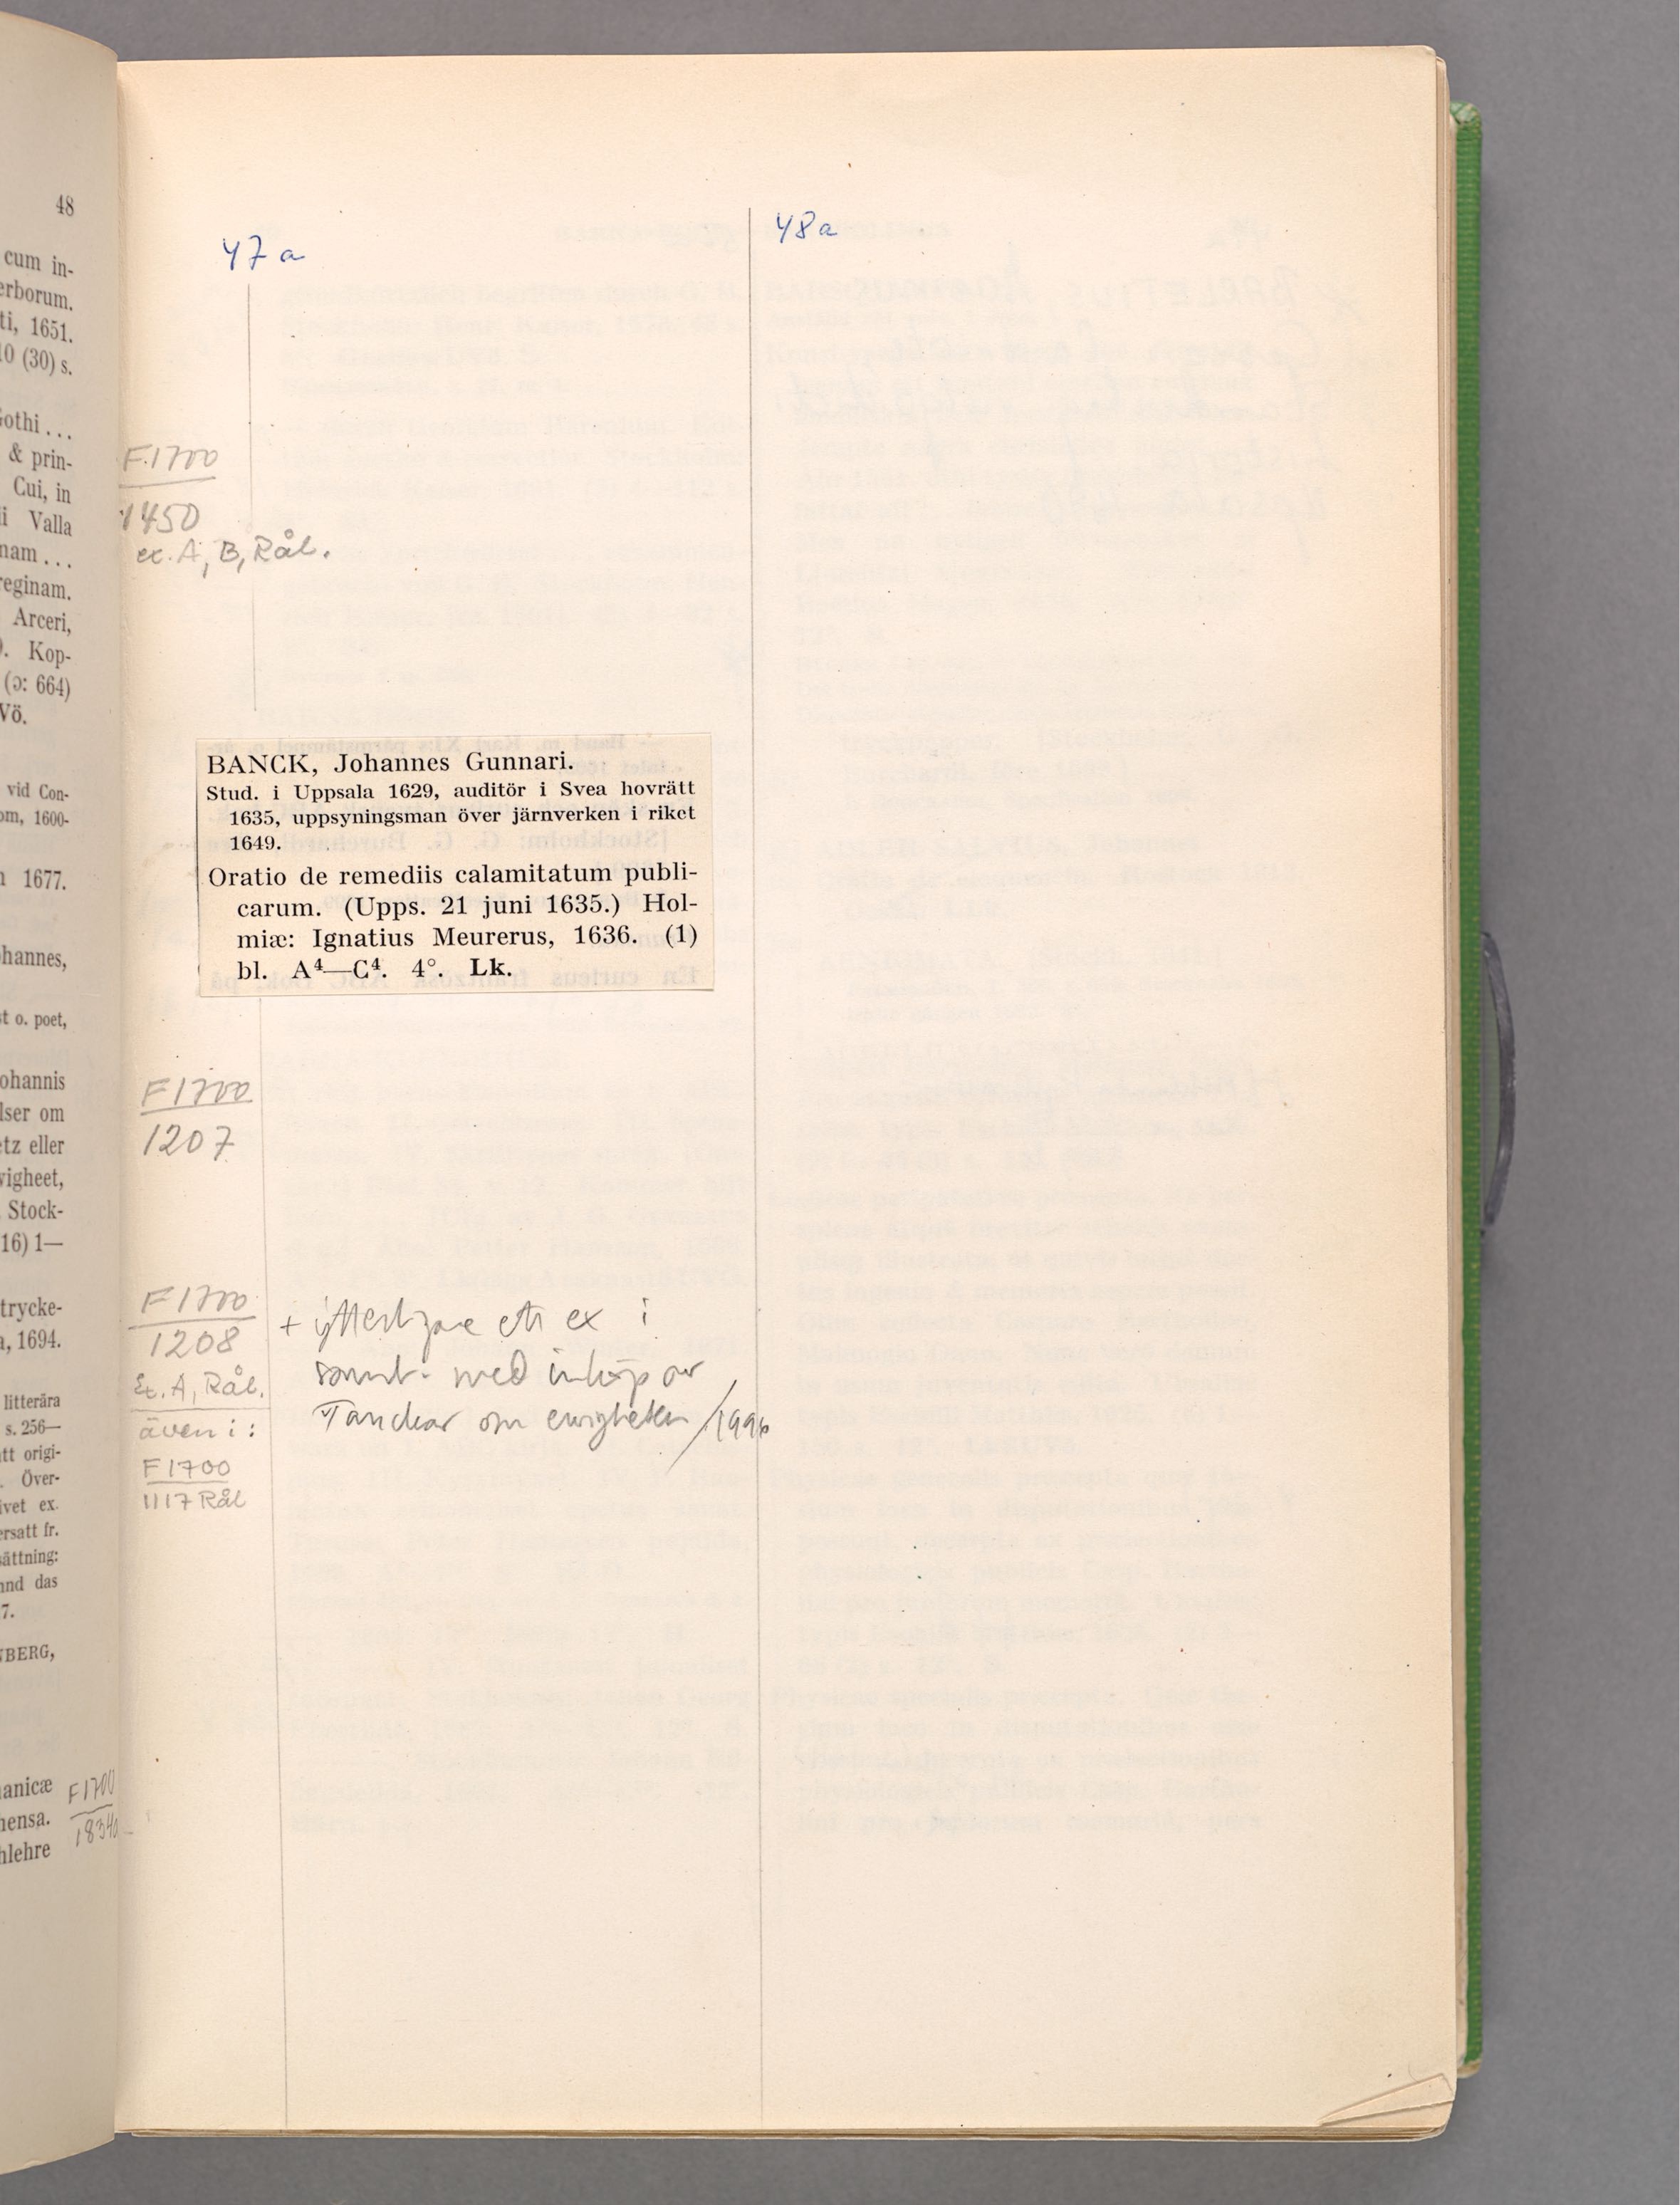 48
cum in-
erborum.
ti, 1651.
10 (30) s.
Gothi...
& prin-
Cui, in
Valla
nam...
reginam.
Arceri,
Kop-
(ɔ: 664)
Vö.
vid Con-
om, 1600-
1677.
ohannes,
st o. poet,
ohannis
lser om
etz eller
vigheet,
Stock-
16) 1—
trycke-
a, 1694.
litterära
s. 256—
tt origi-
Över-
ivet ex.
ersatt fr.
sättning:
and das
7.
NBERG,
anicæ
hensa.
hlehre
F1700
1834a
47a
48a
F.1700
1450
ex. A, B, Rål.
BANCK, Johannes Gunnari.
Stud. i Uppsala 1629, auditör i Svea hovrätt
1635, uppsyningsman över järnverken i riket
1649.
Oratio de remediis calamitatum publi-
carum. (Upps. 21 juni 1635.) Hol-
miæ: Ignatius Meurerus, 1636. (1)
bl. A⁴—C⁴. 4°. Lk.
F1700
1207
F1700
1208
Ex. A, Rål.
även i:
F1700
1117 Rål
+ ytterligare ett ex i
samb. med inköp av
Tanckar om ewigheten /1996